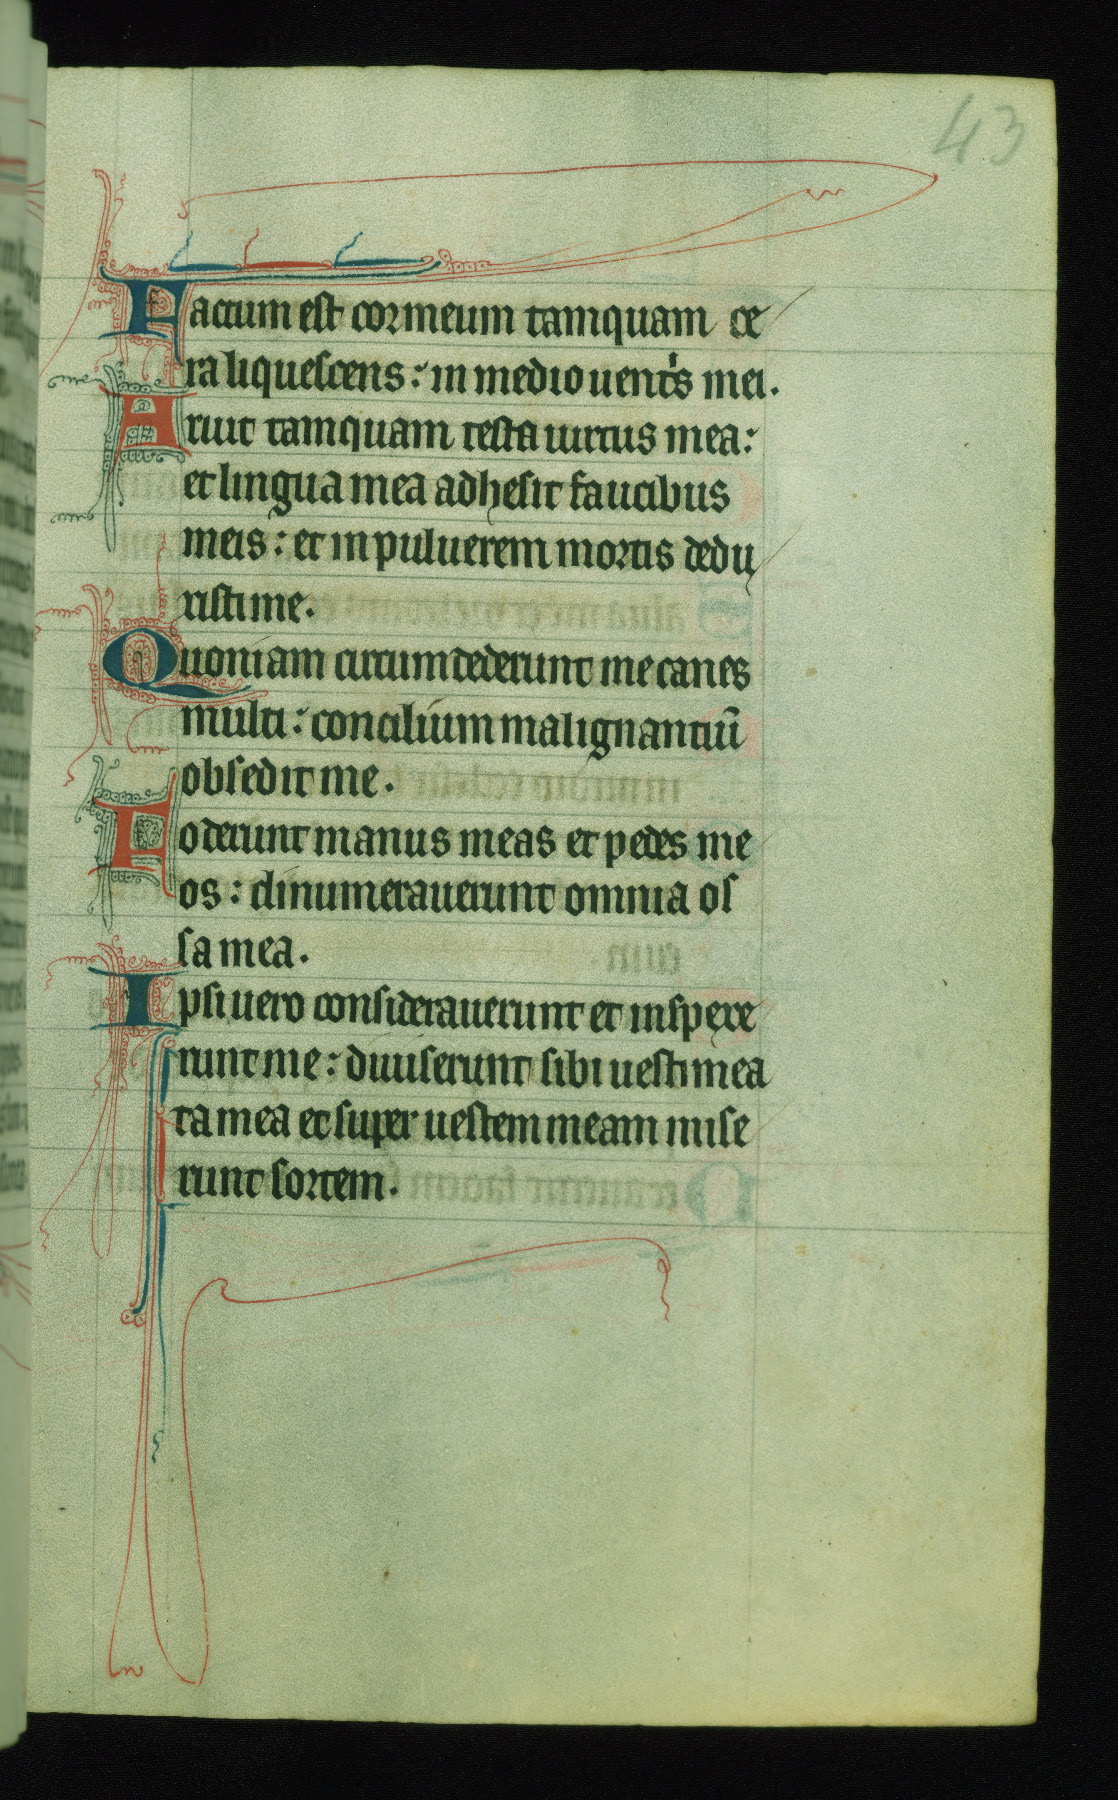 43
Factum est cor meum tamquam ce
ra liquescens: in medio uentͥs mei.
Aruit tamquam testa uirtus mea:
et lingua mea adhesit faucibus
meis: et in puluerem mortis dedu
xisti me.
Quoniam circumdederunt me canes
multi: concilium malignantiū
obsedit me.
Foderunt manus meas et pedes me
os: dinumerauerunt omnia os
sa mea.
Ipsi uero considerauerunt et inspexe
runt me: diuiserunt sibi uestimēa
ta mea et super uestem meam mise
runt sortem.